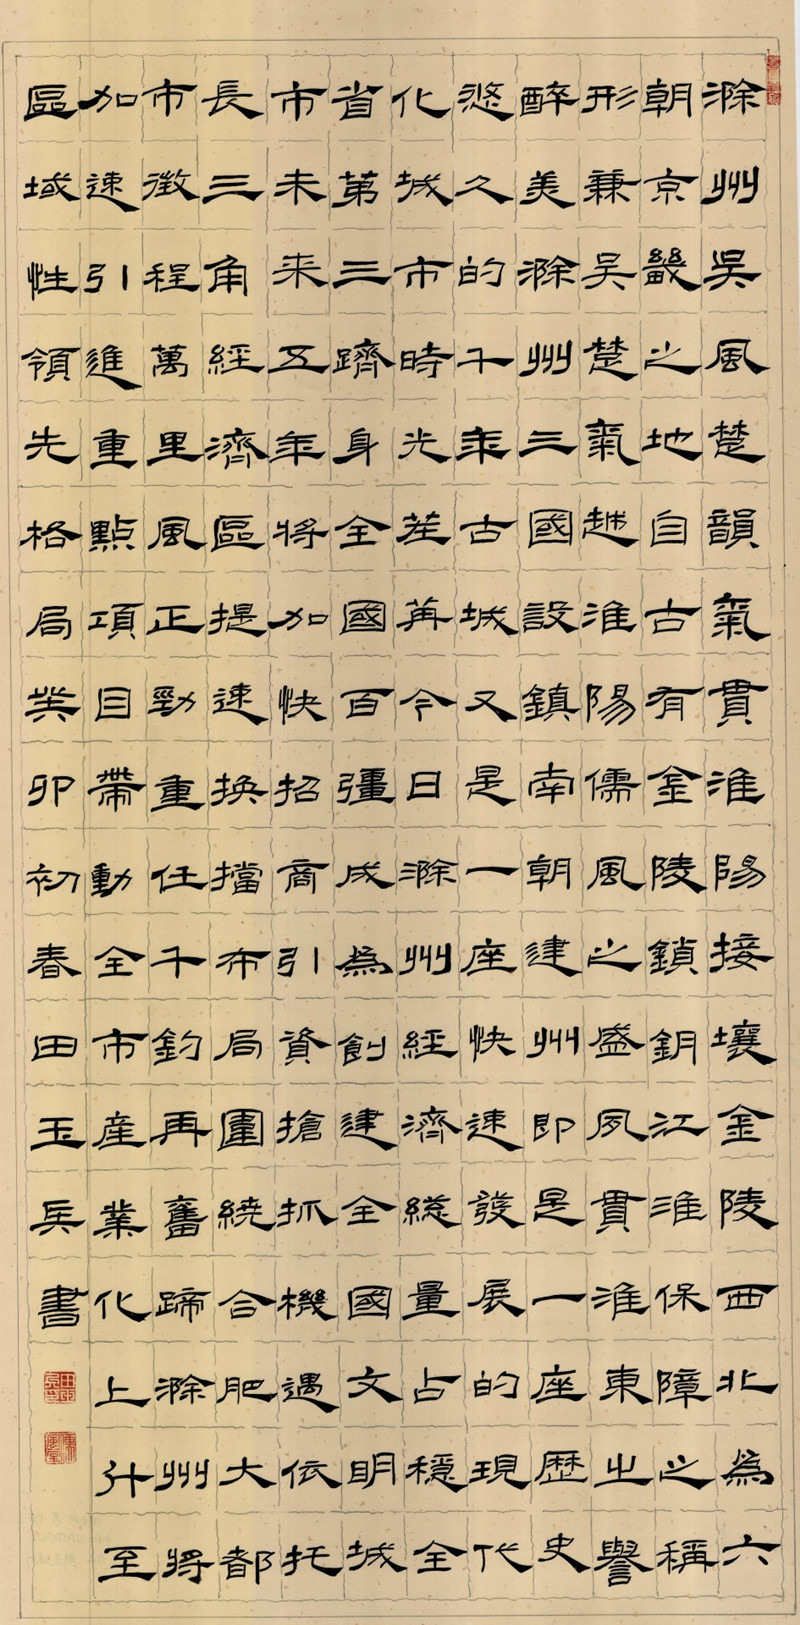 滁州吴風楚韻氣貫淮陽接壤金陵西北為六
朝京畿之地自古有金陵鎖鑰江淮保障之稱
形兼吴楚氣越淮陽儒風之盛夙貫淮東之譽
醉美滁州三國設鎮南朝建州即是一座歷史
悠久的千年古城又是一座快速發展的現代
化城市時光荏苒今日滁州經濟總量占穩全
省第三躋身全國百彊成為創建全國文明城
市未来五年將加快招商引資搶抓機遇依托
長三角經濟區提速换擋布局圍繞合肥大都
市徵程萬里風正勁重任千鈞再奮蹄滁州將
加速引進重點項目帶動全市産業化上升至
區域性領先格局癸卯初春田玉兵書